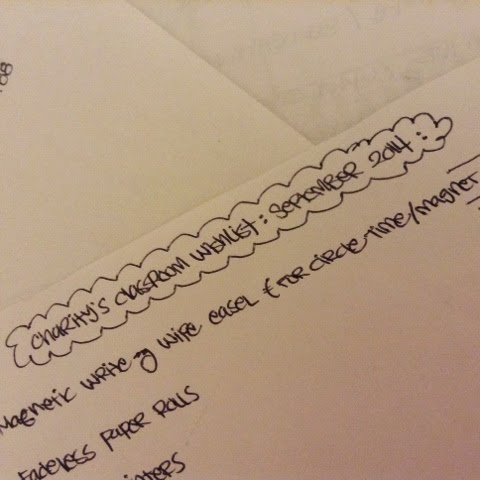 { Charity's classroom wishlist: September 2014 :
Magnetic write & wipe easel { for circle time/magnet
Fadeless paper rolls